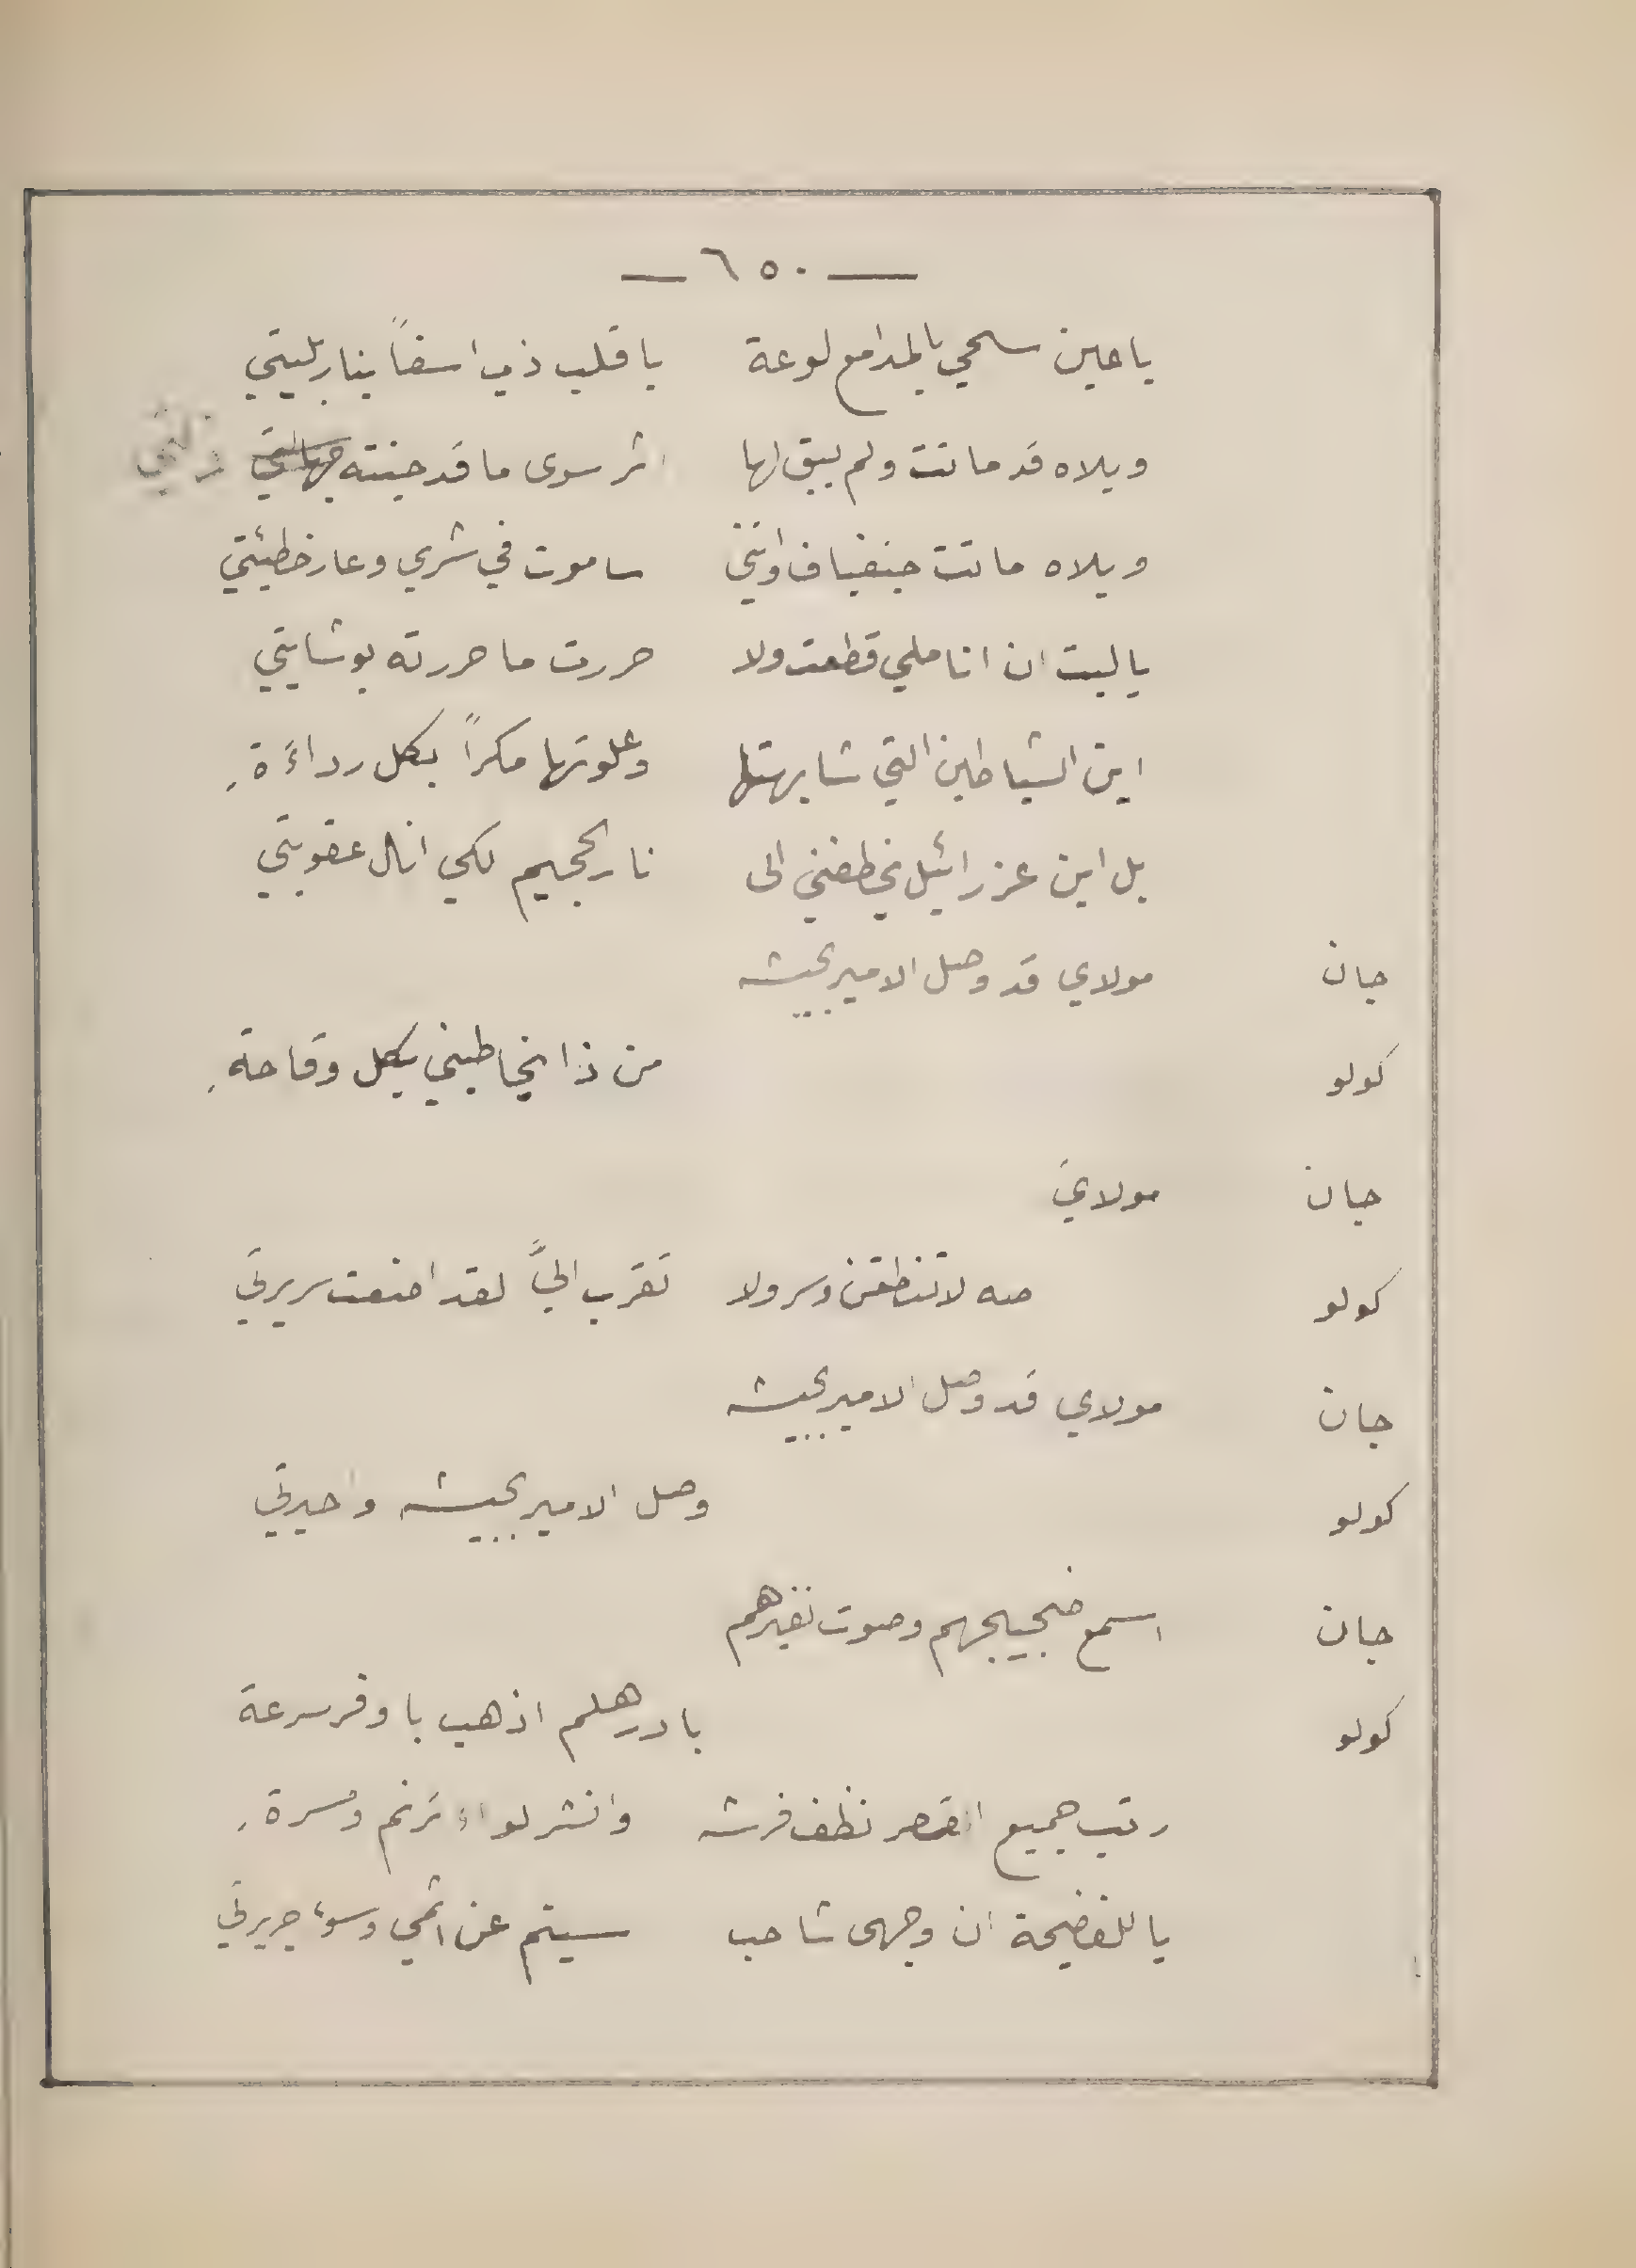 — ٦٥٠ —
يا عين سحي بالمدامع لوعة يا قلب ذب اسفاً بنار بليتي
ويلاه قد ماتت ولم يبق لها اثر سوى ما قد جنته جهالتي
ويلاه ماتت جنفياف وانني ساموت في شري وعار خطيئتي
يا ليت ان اناملي قطعت ولا حررت ما حررته بوشايتي
اين الشياطين التي شابهتها وعلوتها مكراً بكل رداءَةِ
بل اين عزرائيل يخطفني الى نار الجحيم لكي انال عقوبتي
جان مولاي قد وصل الامير بجيشه
كولو من ذا يخاطبني بكل وقاحةِ
جان مولايَ
كولو صه لا تنطقن وسر ولا تقرب اليَّ لقد اضعت سريرتي
جان مولاي قد وصل الامير بجيشه
كولو وصل الامير بجيشه واحيرتي
جان اسمع ضجيجهم وصوت نفيرهم
كولو بادر هلم اذهب باوفر سرعة
رتب جميع القصر نظف فرشه وانشر لواء ترنم ومسرةِ
يا للفضيحة ان وجهى شاحب سيتم عن اثمي وسوء جريرتي